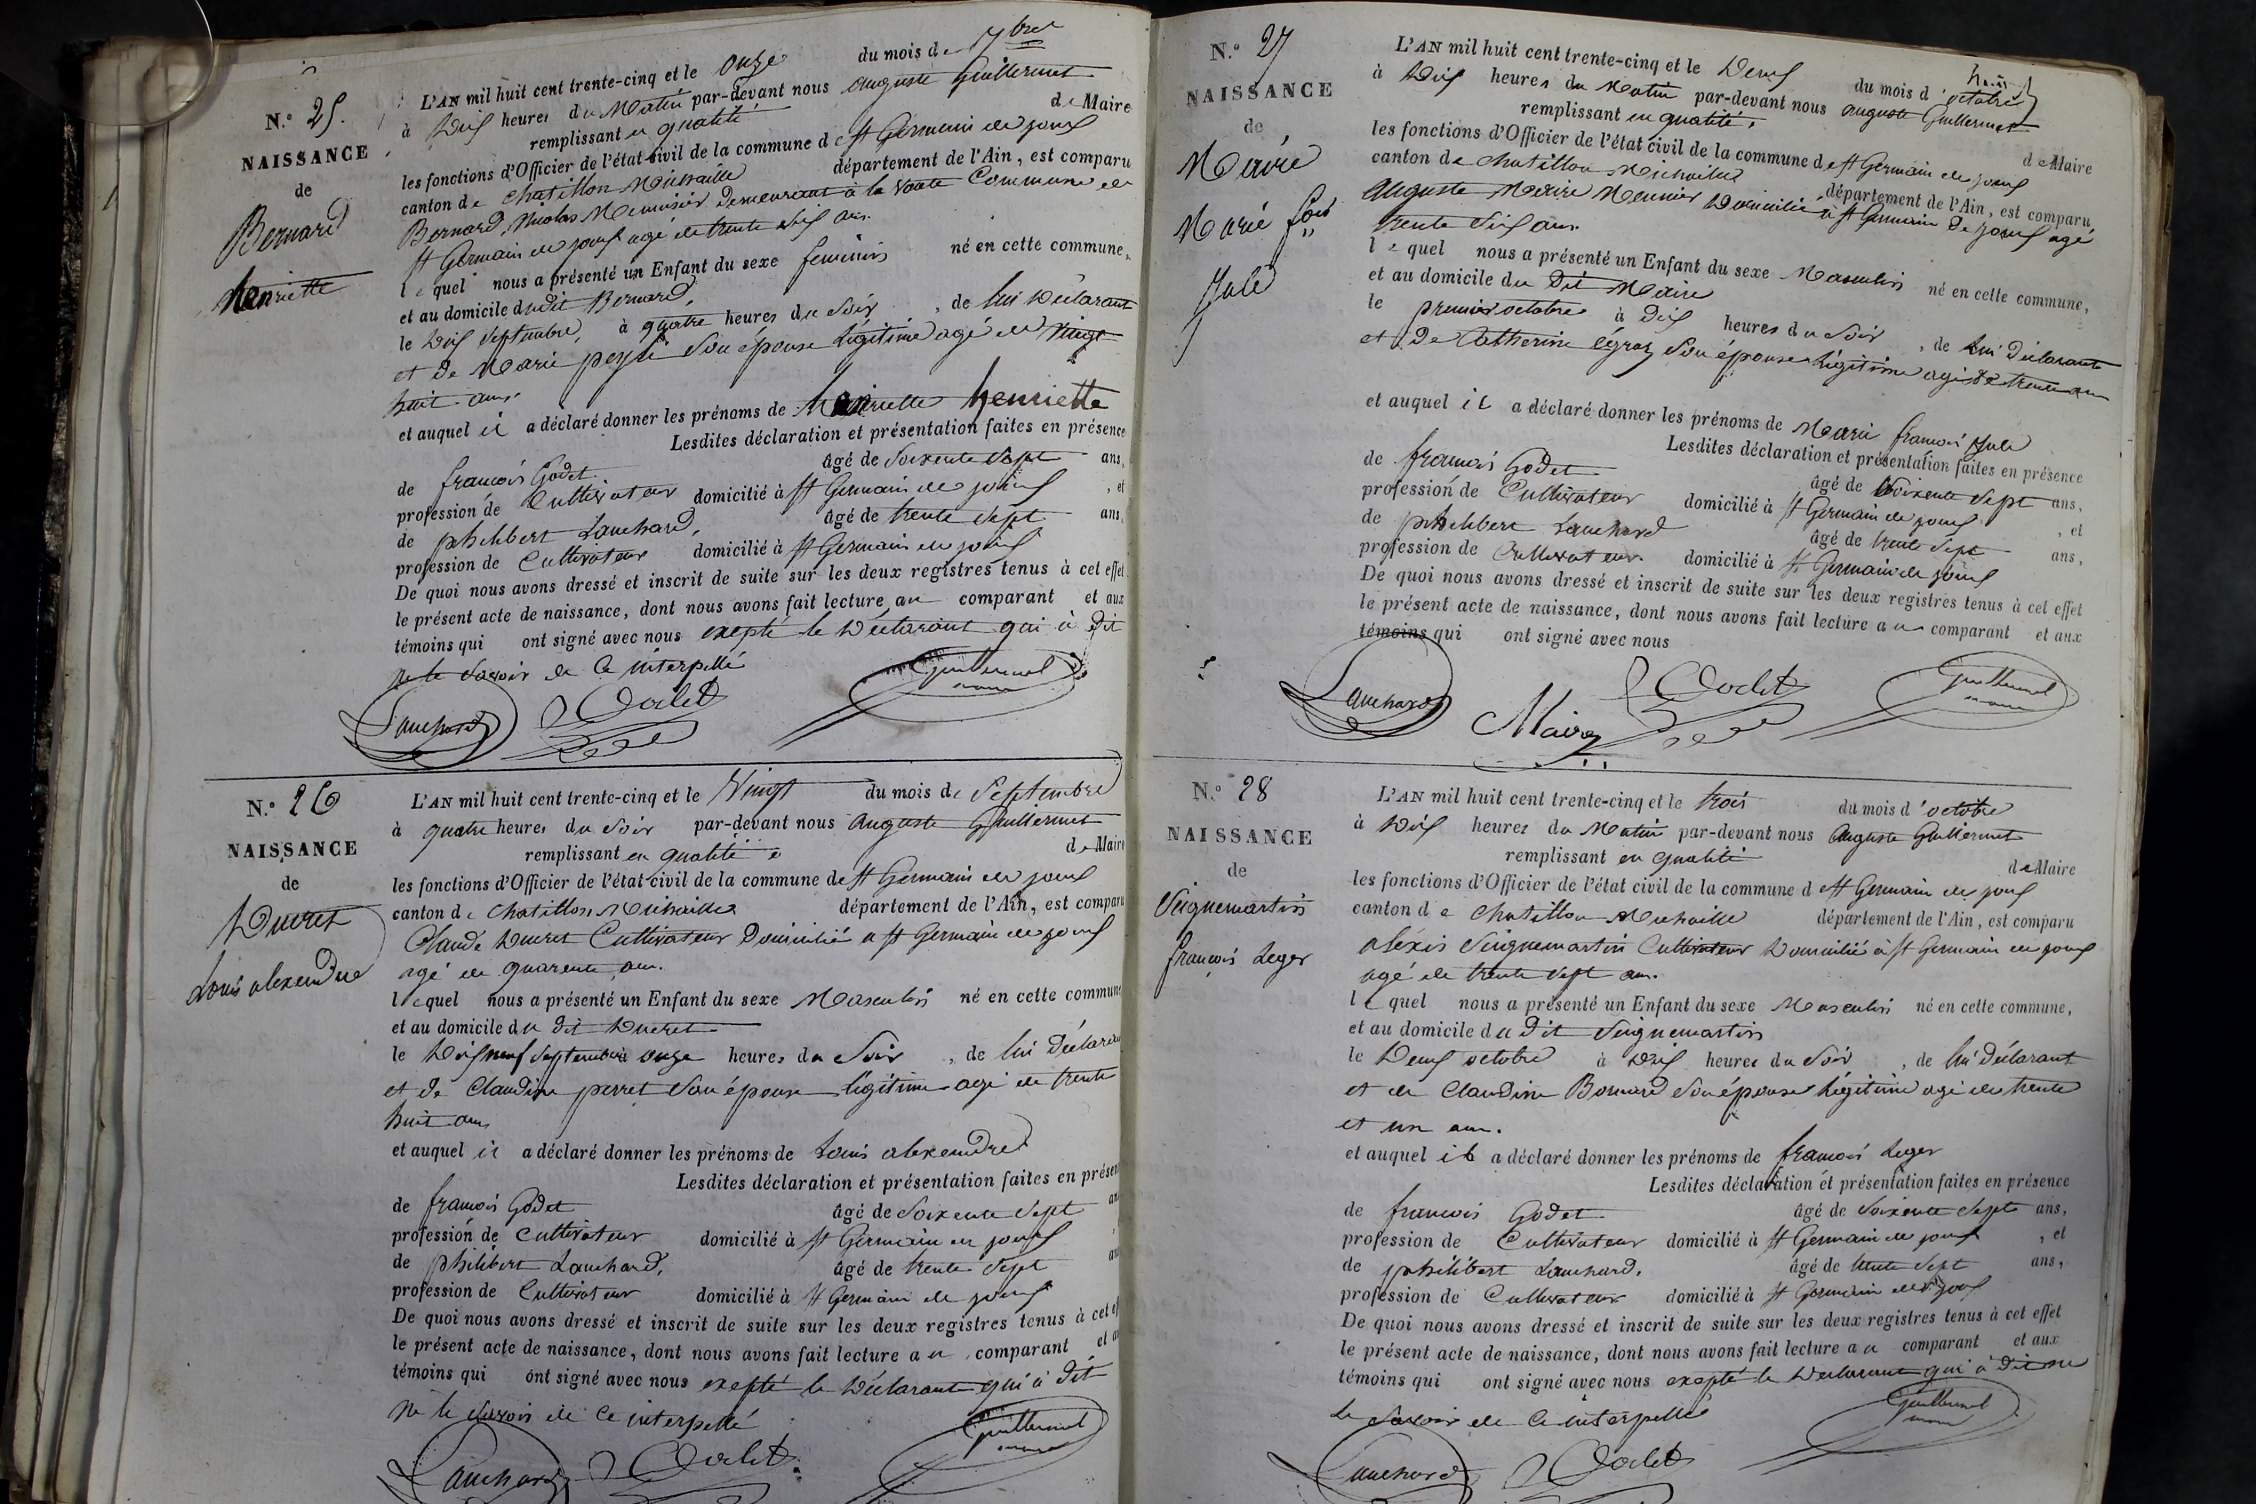 N.º 25.
NAISSANCE
de
Bernard
henriette
L'AN mil huit cent trente-cinq et le onze du mois de 7bre
à dix heures du Matin par-devant nous auguste Guillermet
remplissant en qualité de Maire
les fonctions d'Officier de l'état civil de la commune de St Germain de joux
canton de Chatillon Michaille département de l'Ain, est comparu
Bernard, Nicolas Menuisier Demeurant à la voute Commune de
St Germain de joux agé de trente six ans.
lequel nous a présenté un Enfant du sexe feminin né en cette commune,
et au domicile dudit Bernard,
le dix septembre, à quatre heures du soir, de lui Déclarant
et de Marie son épouse légitime agé de vingt
huit ans.
et auquel il a déclaré donner les prénoms de henriette
Lesdites déclaration et présentation faites en présence
de francois Godet âgé de soixente sept ans,
profession de Cultivateur domicilié à St Germain de joux, et
de philibert Lauchard, âgé de trente sept ans,
profession de Cultivateur domicilié à St Germain de joux
De quoi nous avons dressé et inscrit de suite sur les deux registres tenus à cet effet
le présent acte de naissance, dont nous avons fait lecture au comparant et aux
témoins qui ont signé avec nous exepté le Déclarant qui à dit
ne le savoir de ce interpellé
Lauchard Godet Guillermet
maire
N.º 26
NAISSANCE
de
Ducret
Louis alexendre
L'AN mil huit cent trente-cinq et le Vingt du mois de Septembre
à quatre heures du soir par-devant nous auguste Guillermet
remplissant en qualité de Maire
les fonctions d'Officier de l'état civil de la commune de St Germain de joux
canton de Chatillon Michaille département de l'Ain, est comparu
Claude Ducret Cultivateur Domicilié a St Germain de joux
agé de quarente ans.
lequel nous a présenté un Enfant du sexe Masculin né en cette commune
et au domicile du dit Ducret
le dix neuf septembre onze heures du soir, de lui Déclarant
et de Claudine perret son épouse légitime agé de trente
huit ans
et auquel il a déclaré donner les prénoms de Louis alexendre
Lesdites déclaration et présentation faites en présen
de francois Godet âgé de soixente sept an
profession de Cultivateur domicilié à St Germain de joux
de philibert Lauchard, âgé de trente sept an
profession de Cultivateur domicilié à St Germain de joux
De quoi nous avons dressé et inscrit de suite sur les deux registres tenus à cet ef
le présent acte de naissance, dont nous avons fait lecture au comparant et au
témoins qui ont signé avec nous exepté le Déclarant qui à dit
ne le savoir de ce interpellé
Lauchard Godet Guillermet
N.º 27
NAISSANCE
de
Maire
Marie fois
Jule
L'AN mil huit cent trente-cinq et le Deux du mois d'octobre
à dix heures du Matin par-devant nous auguste Guillermet
remplissant en qualité, de Maire
les fonctions d'Officier de l'état civil de la commune de St Germain de joux
canton de Chatillon Michaille département de l'Ain, est comparu,
Auguste Maire Meunier Domicilié a St Germain De joux agé
trente six ans.
lequel nous a présenté un Enfant du sexe Masculin né en cette commune,
et au domicile du dit Maire
le premier octobre à dix heures du soir, de lui Déclarant
et De Catherine égraz son épouse légitime agé de trente ans
et auquel il a déclaré donner les prénoms de Marie françois Jule
Lesdites déclaration et présentation faites en présence
de francois Godet âgé de soixente sept ans,
profession de Cultivateur domicilié à St Germain de joux, et
de philibert Lauchard âgé de trente sept ans,
profession de Cultivateur domicilié à St Germain de joux
De quoi nous avons dressé et inscrit de suite sur les deux registres tenus à cet effet
le présent acte de naissance, dont nous avons fait lecture au comparant et aux
témoins qui ont signé avec nous
Lauchard Maire Godet Guillermet
maire
N.º 28
NAISSANCE
de
Seignemartin
françois Leger
L'AN mil huit cent trente-cinq et le trois du mois d'octobre
à dix heures du Matin par-devant nous Auguste Guillermet
remplissant en qualité de Maire
les fonctions d'Officier de l'état civil de la commune de St Germain de joux
canton de Chatillon Michaille département de l'Ain, est comparu
alexis Seignemartin Cultivateur Domicilié à St Germain de joux
agé de trente sept ans.
lequel nous a présenté un Enfant du sexe Masculin né en cette commune,
et au domicile du dit Seignemartin
le Deux octobre à dix heures du soir, de lui déclarant
et de Claudine Bernard son épouse légitime agé de trente
et un ans.
et auquel il a déclaré donner les prénoms de françois Leger
Lesdites déclaration et présentation faites en présence
de francois Godet âgé de soixente sept ans,
profession de Cultivateur domicilié à St Germain de joux, et
de philibert Lauchard, âgé de trente sept ans,
profession de Cultivateur domicilié à St Germain de joux
De quoi nous avons dressé et inscrit de suite sur les deux registres tenus à cet effet
le présent acte de naissance, dont nous avons fait lecture au comparant et aux
témoins qui ont signé avec nous exepté le Declarant qui à dit ne
le savoir de ce interpellé
Lauchard Godet Guillermet
maire